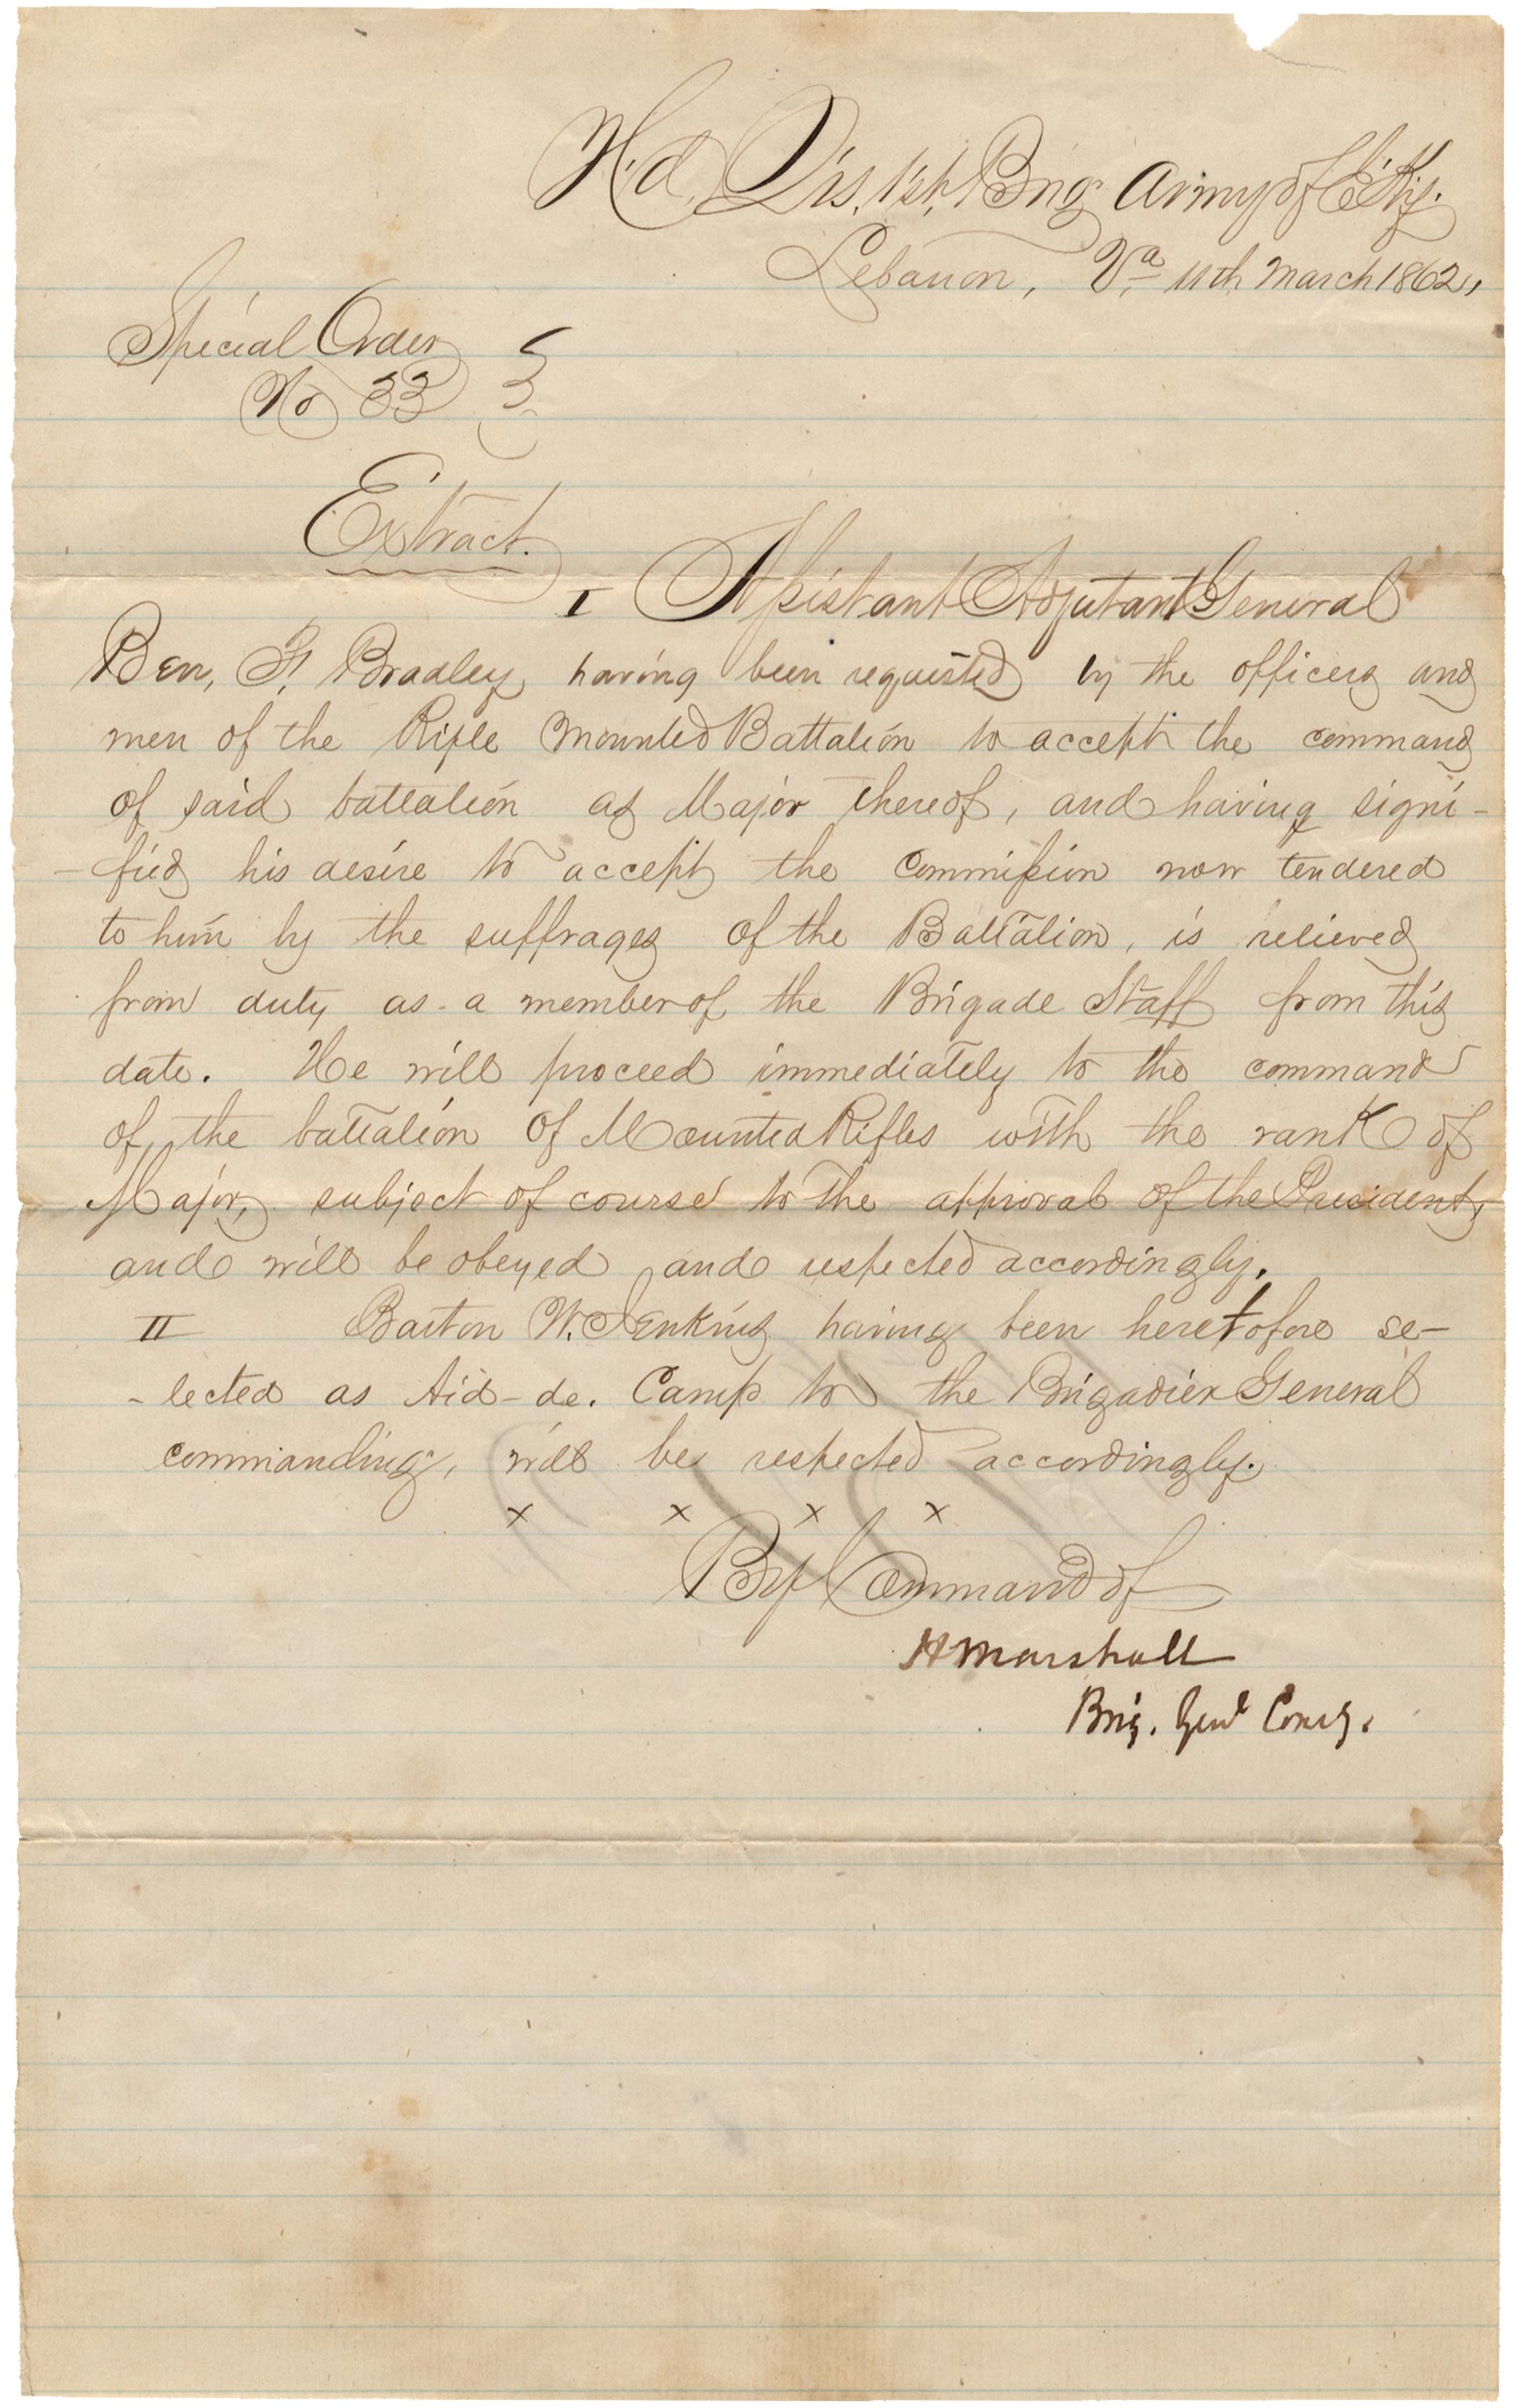 Hd. Qrs. 1st. Brig Army of E. Ky.
Lebanon, Va 11th March 1862,
Special Order
No 33
Extract.
I Assistant Adjutant General
Ben, F. Bradley, having been requested by the officers and
men of the Rifle Mounted Battalion to accept the command
of said battalion as Major thereof, and having signi-
-fied his desire to accept the Commission now tendered
to him by the suffrages of the Battalion, is relieved
from duty as a member of the Brigade Staff from this
date. He will proceed immediately to the command
of the battalion of Mounted Rifles with the rank of
Major, subject of course to the approval of the President,
and will be obeyed and respected accordingly.
II Barton W. Jenkins having been heretofore se-
-lected as Aid-de. Camp to the Brigadier General
commanding, will be respected accordingly.
x x x x
By Command of
H Marshall
Brig. Genl Comg.